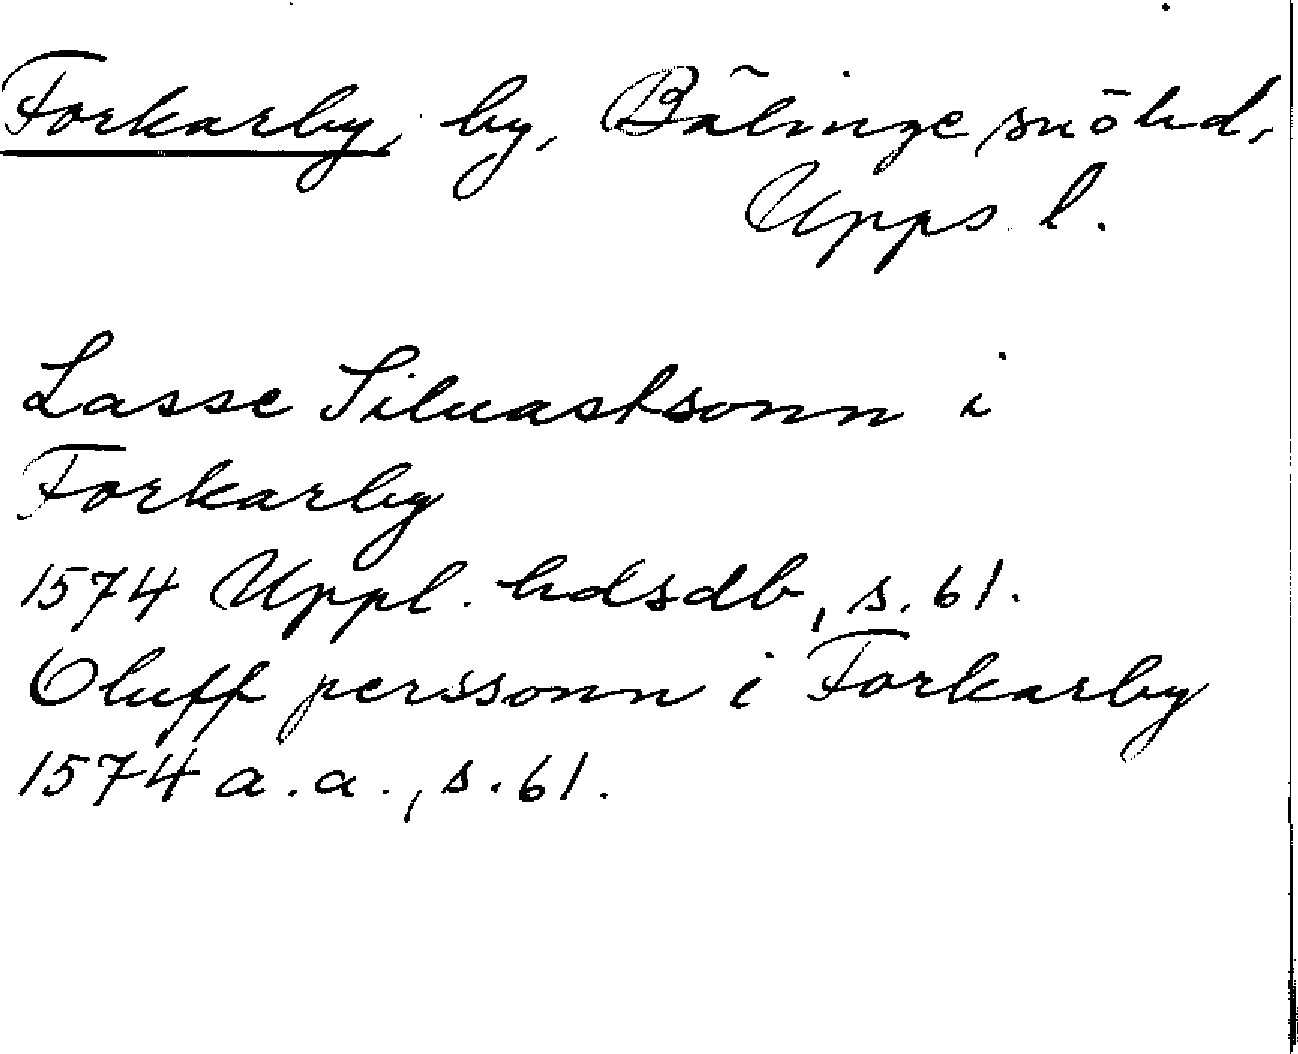 Forkarby, by, Bälinge sn ō hd,
Upps. l.
Lasse Siluastsonn i
Forkarby
1574 Uppl. hdsdb, s. 61.
Oluff perssonn i Forkarby
1574 a.a., s. 61.